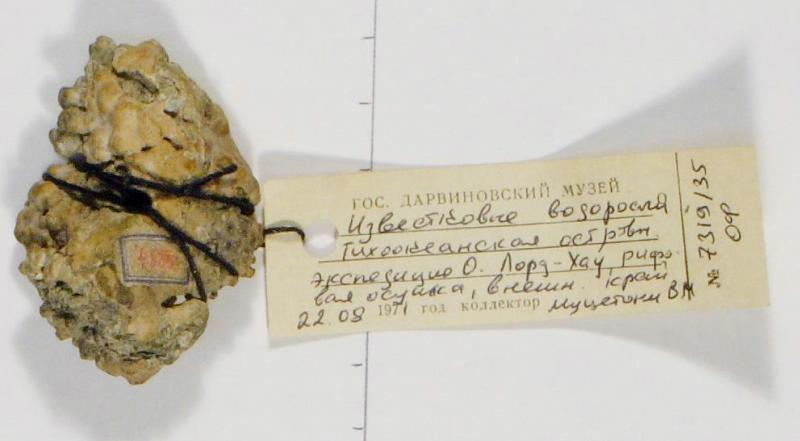 ГОС. ДАРВИНОВСКИЙ МУЗЕЙ
Известковые водоросли
Тихоокеанская островн.
экспедиция О. Лорд-Хау, рифо-
вая осушка, внешн. край
22.08 1971 год коллектор Муцетони В.М
№ 7319/35
ОФ